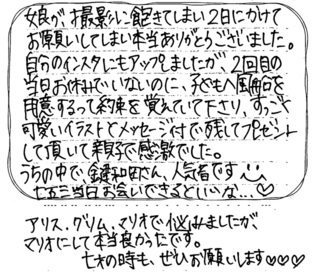 娘が、撮影に飽きてしまい2日にかけて
お願いしてしまい本当ありがとうございました。
自分のインスタにもアップしましたが、2回目の
当日お休みでいないのに、子どもへ風船を
用意するって約束を覚えていて下さり、すっごく
可愛いイラストとメッセージ付で残してプレゼント
して頂いて親子で感激でした。
うちの中で、鎌和田さん、人気者です
七五三当日お会いできるといいな...♡
アリス、グリム、マリオで悩みましたが、
マリオにして本当良かったです。
七才の時も、ぜひお願いします♡♡♡